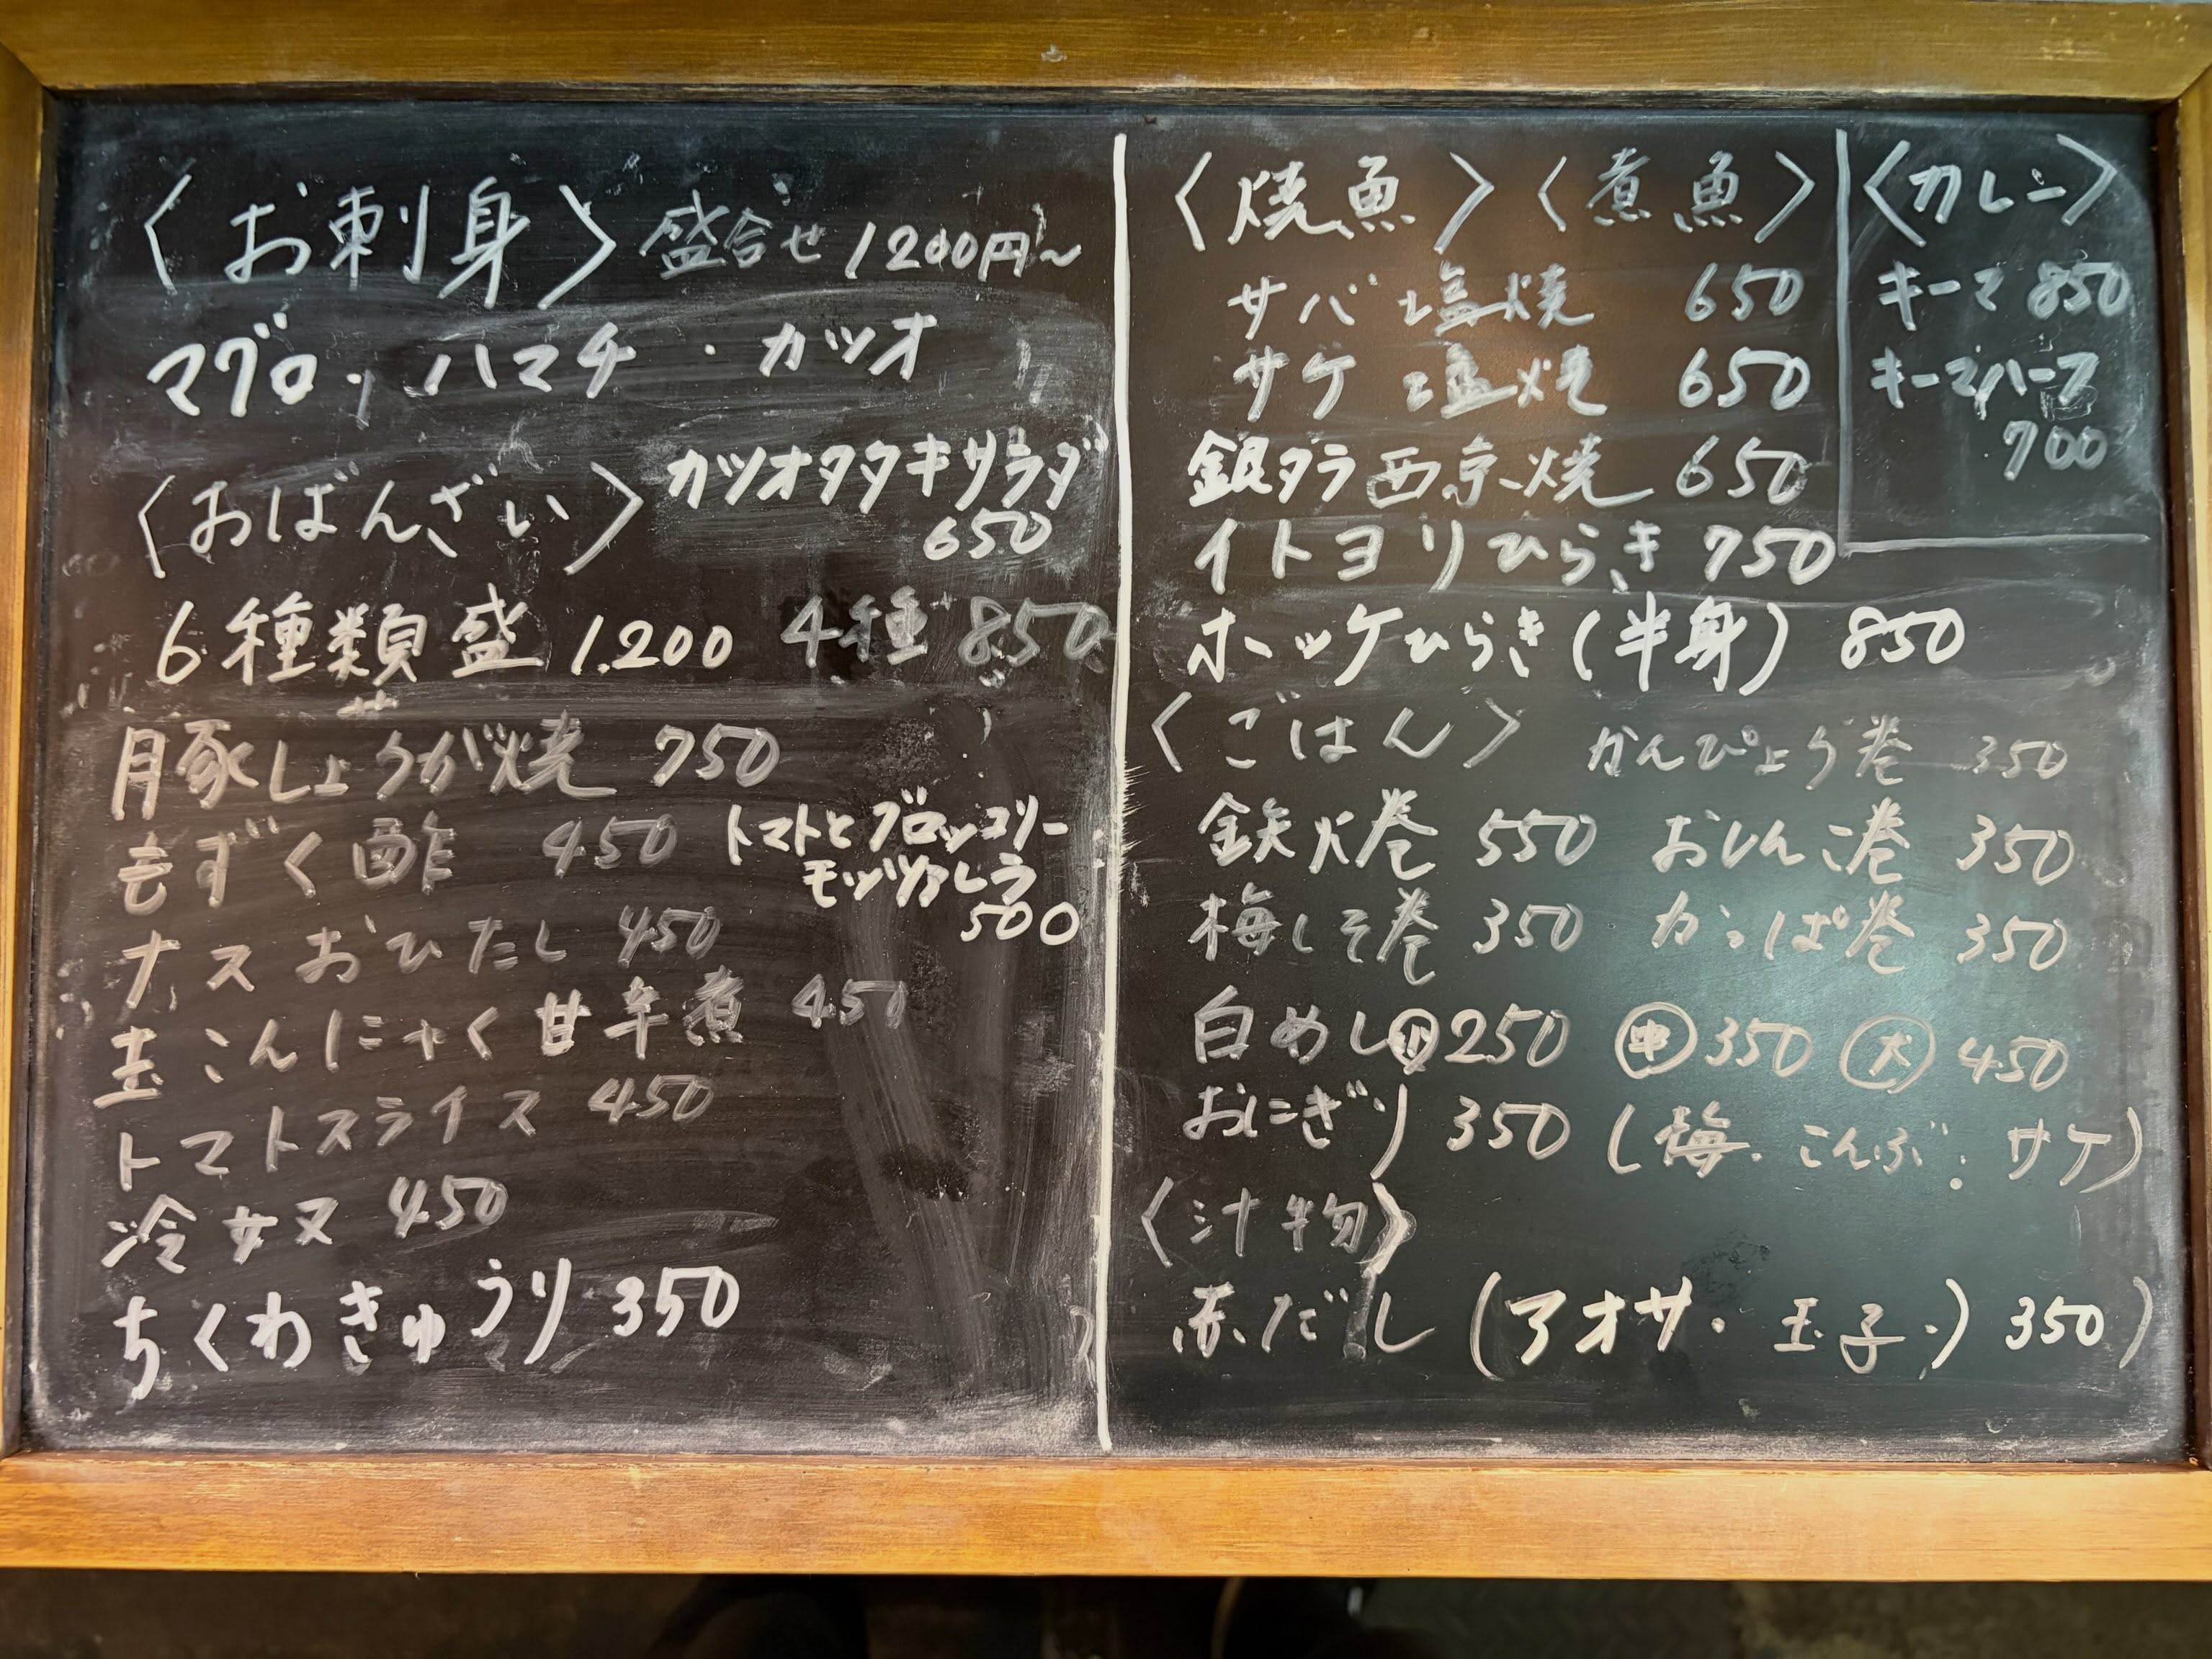 〈お刺身〉盛合せ 1200円〜
マグロ・ハマチ・カツオ
〈おばんざい〉カツオタタキサラダ
650
6種類盛 1.200 4種 850
豚しょうが焼 750
もずく酢 450
トマトとブロッコリー
モッツァレラ
500
ナスおひたし 450
玉こんにゃく甘辛煮 450
トマトスライス 450
冷奴 450
ちくわきゅうり 350
〈焼魚〉〈煮魚〉
サバ塩焼 650
サケ塩焼 650
銀ダラ西京焼 650
イトヨリひらき 750
ホッケひらき(半身) 850
〈カレー〉
キーマ 850
キーマハーフ
700
〈ごはん〉 かんぴょう巻 350
鉄火巻 550 おしんこ巻 350
梅しそ巻 350 かっぱ巻 350
白めし㊙250 ㊥350 大 450
おにぎり 350 (梅・こんぶ・サケ)
〈汁物〉
赤だし (アオサ・玉子・) 350)